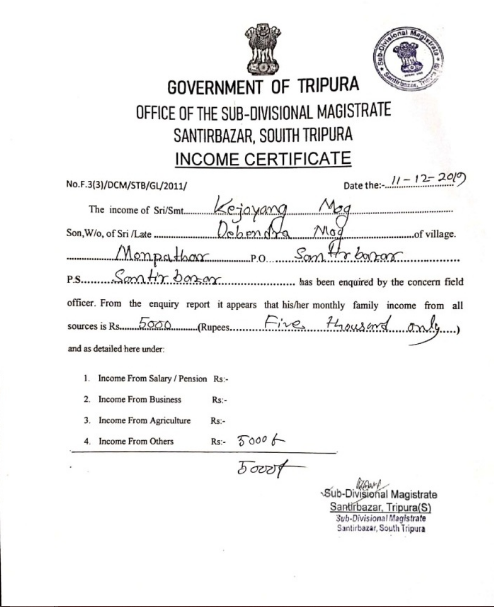 Sub-Divisional Magistrate
Santirbazar, Tripura
GOVERNMENT OF TRIPURA
OFFICE OF THE SUB-DIVISIONAL MAGISTRATE
SANTIRBAZAR, SOUTH TRIPURA
INCOME CERTIFICATE
No.F.3(3)/DCM/STB/GL/2011/ Date the:- 11-12-2019
The income of Sri/Smt. Kejoyang Mog
Son,W/o, of Sri /Late Debendra Mog of village.
Monpathar P.O Santirbazar
P.S. Santirbazar has been enquired by the concern field
officer. From the enquiry report it appears that his/her monthly family income from all
sources is Rs. 5000 (Rupees. Five thousand only)
and as detailed here under:
1. Income From Salary / Pension Rs:-
2. Income From Business Rs:-
3. Income From Agriculture Rs:-
4. Income From Others Rs:- 5000/-
5000/-
Sub-Divisional Magistrate
Santirbazar, Tripura(S)
Sub-Divisional Magistrate
Santirbazar, South Tripura